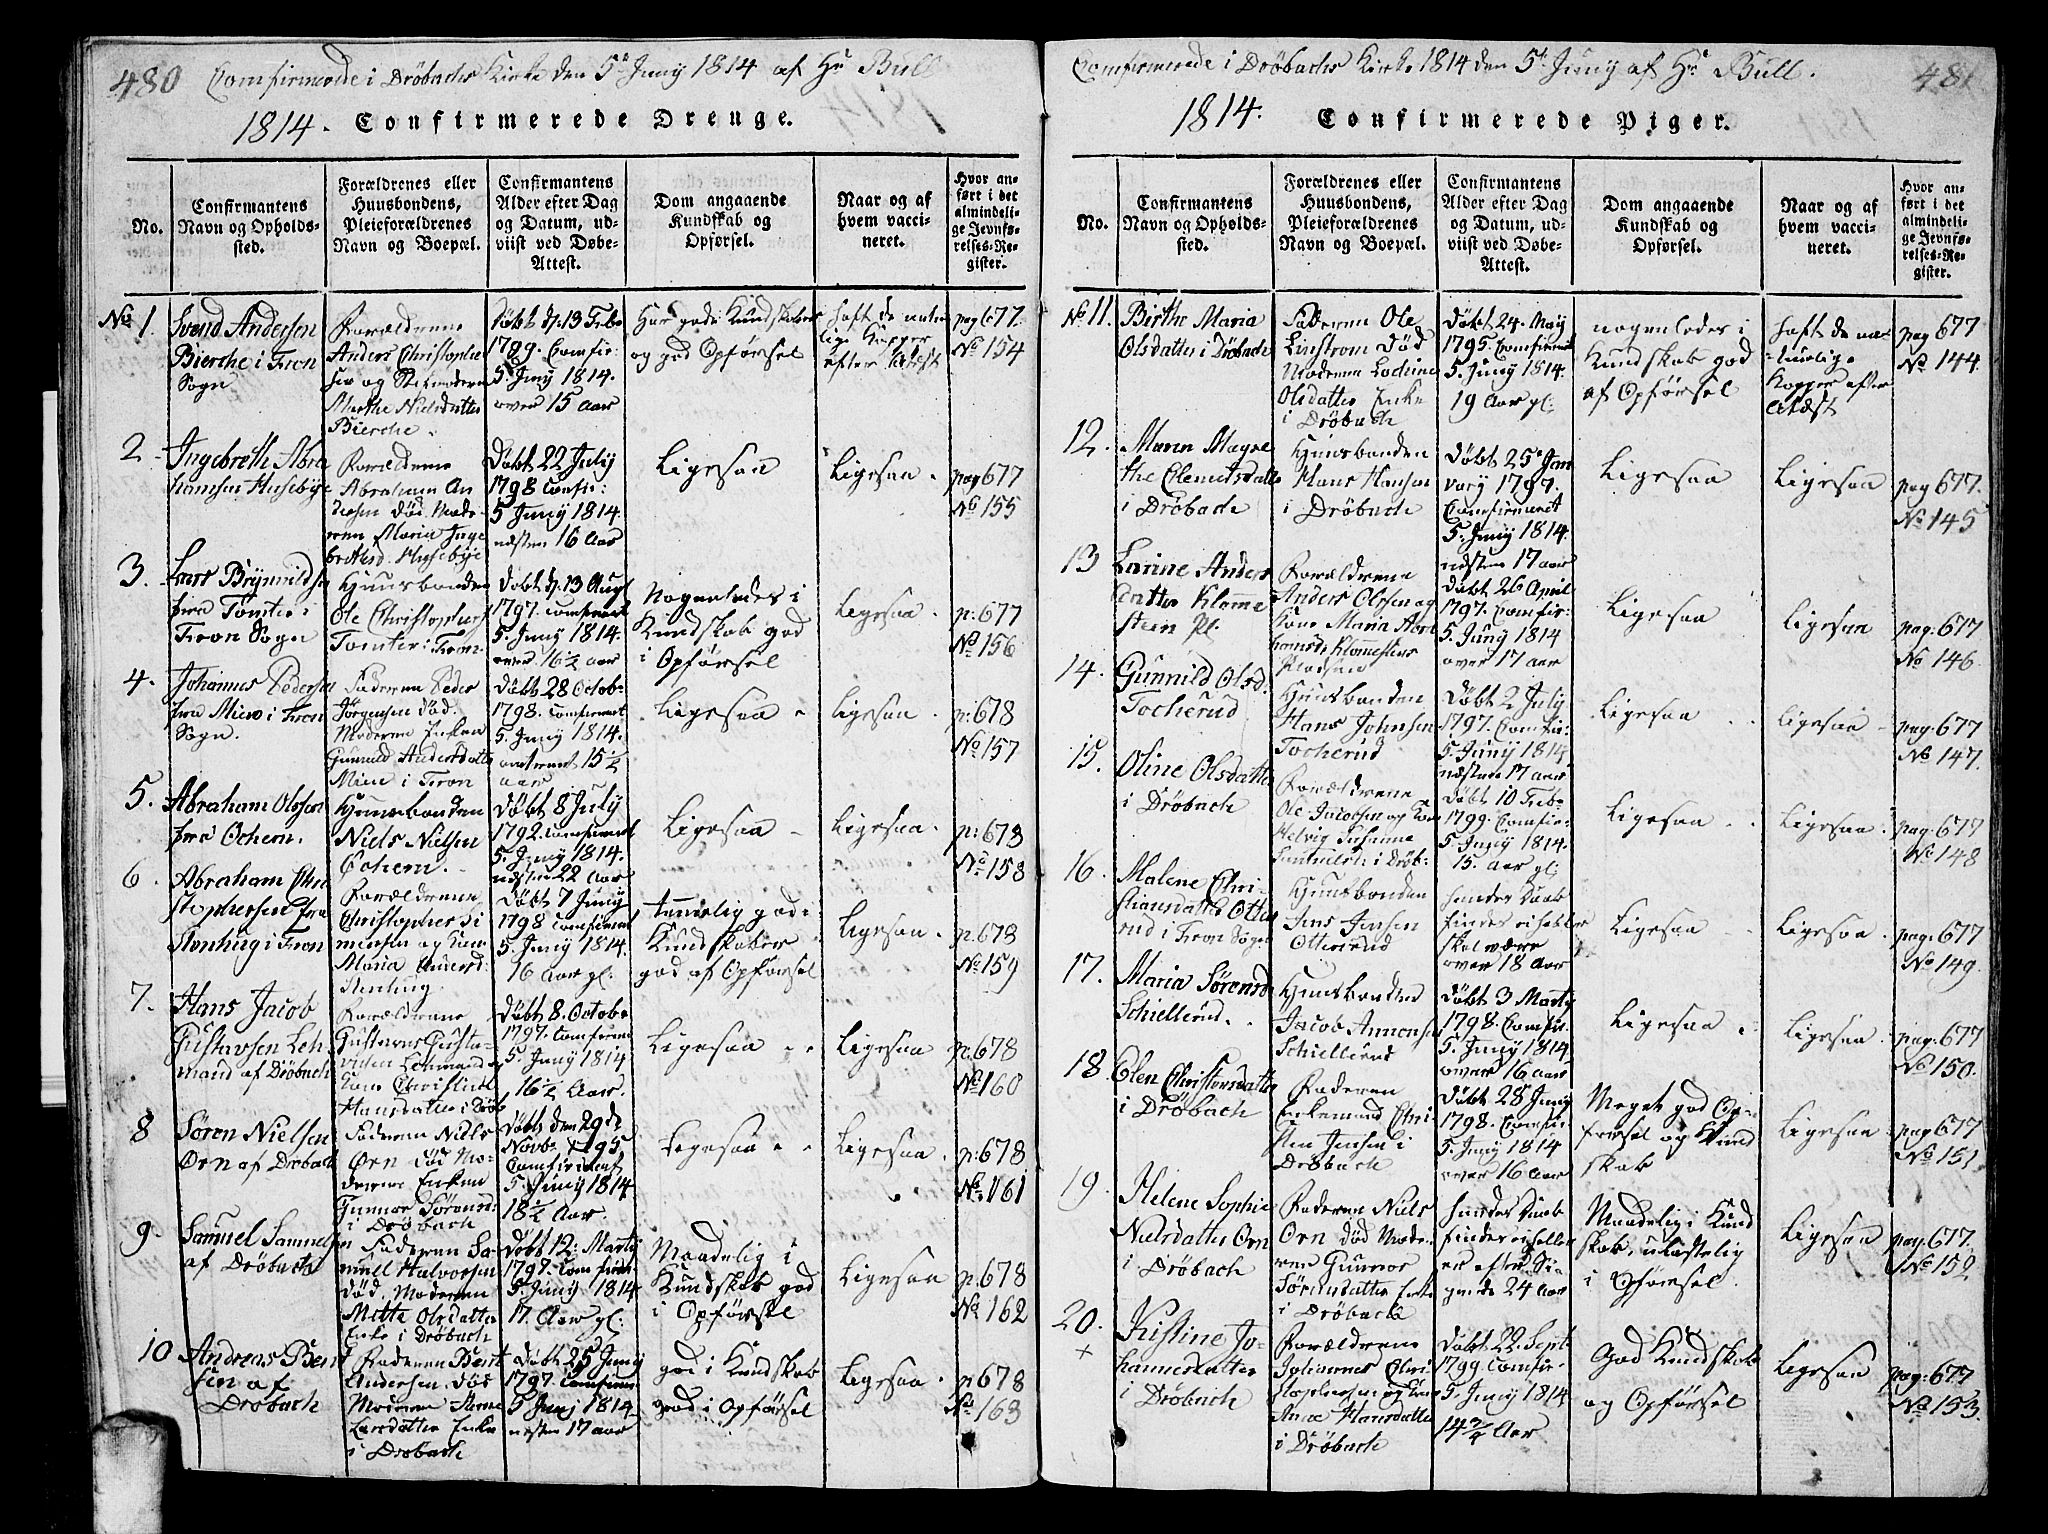 480 Comfirmerede i Dröbachs Kirke den 5te Juny 1814 af Hr Bull
1814. Confirmerede Drenge.
No.
Confirmantens
Navn og Opholds-
sted.
Forældrenes eller
Huusbondens,
Pleieforældrenes
Navn og Boepæl.
Confirmantens
Alder efter Dag
og Datum, ud-
viist ved Døbe-
Attest.
Dom angaaende
Kundskab og
Opførsel.
Naar og af
hvem vacci-
neret.
Hvor an-
ført i det
almindeli-
ge Jevnfø-
relses-Re-
gister.
No 1.
Svend Andersen
Bierche i Fron
Sogn
Forældrene
Anders Christophe
sen og Stifmoderen
Marthe Nielsdatter
Bierche.
Døbt d. 13 Feb.
1799. Comfir:
5 Juny 1814.
over 15 Aar
Har gode Kundskaber
og god Opførsel
haft de natur
lige Kopper
efter Atest
pag 677.
No 154
2
Ingebreth Abra
hamsen Husebye
Forældrene
Abraham An
dersen död Mode-
ren Maria Inge
bretsd. Husebye
Døbt 22 July
1798 Comfir:
5 Juny 1814.
næsten 16 Aar
Ligesaa
Ligesaa.
pag 677
No 155
3.
Lars Brynnildsen
fra Tomter i
Fron Sogn
Huusbonden
Ole Christophers
Tomter i Fron
Døbt d. 13 Aug
1797. Comfirmert
5. Juny 1814.
over 16½ Aar
Nogenledes i
Kundskab god
i Opførsel
Ligesaa.
p: 677
No 156
4.
Johannes Pedersen
fra Mien i Fron
Sogn.
Faderen Peder
Jørgensen död.
Moderen Enken
Gunnild Andersdatter
Mien i Fron
Døbt 28 Octob.
1798. Comfirmert
5. Juny 1814.
omtrent 15½
aar
Ligesaa
Ligesaa.
p: 678
No 157
5.
Abraham Olssen
fra Ochern.
Huusbonden
Niels Nielsen
Ochern.
Døbt 8 July
1792. Comfirmert
5. Juny 1814.
næsten 22 Aar
Ligesaa
Ligesaa.
p: 678
No 158
6.
Abraham Chri
stophersen fra
Stenhug i Fron
Forældrene
Christopher Si
mensen og Kone
Maria Andersd.
Stenhug.
Døbt 7 Juny
1798 Comfirmert
5. Juny 1814.
16 Aar gl:
temmelig gode
Kundskaber
god af Opførsel
Ligesaa.
p. 678
No 159
7.
Hans Jacob
Gustavsen Leh-
mand af Dröbach
Forældrene
Gustavus Gusta-
vsen Lehmand og
Kone Christine
Hansdatter i Dröb.
Døbt 8. Octobr
1797. Comfirmert
5 Juny 1814
16½ Aar.
Ligesaa
Ligesaa
p. 678
No 160
8
Søren Nielsen
Orn af Dröbach
Faderen Niels
Orn död Mo-
deren Enken
Gunnor Sørensd:
i Dröbach
Døbt den 29de
Novbr 1795
Comfirmert
5 Juny 1814.
18½ Aar
Ligesaa
Ligesaa.
p: 678
No 161
9.
Samuel Samuels
af Dröbach
Faderen Sa-
muell Halvorsen
död. Moderen
Mette Olsdatter
Enke i Dröbach
Døbt 12. Marty
1797. Comfirm.
5 Juny 1814
17. Aar gl:
Maadelig i
Kundskab god
i Opførsel
Ligesaa
p. 678
No 162
10
Andreas Bent
sen af
Dröbach
Faderen Bent
Andersen död
Moderen
Larsdatter Enke
i Dröbach
Døbt 25 Juny
1797. Comfirm
5 Juny 1814
næsten 17 aar
god i Kundskab
god i Opførsel
Ligesaa.
p. 678
No 163
Comfirmerede i Dröbachs Kirke 1814 den 5te Juny af Hr Bull. 481
1814. Confirmerede Piger.
No.
Confirmantens
Navn og Opholds-
sted.
Forældrenes eller
Huusbondens,
Pleieforældrenes
Navn og Boepæl.
Confirmantens
Alder efter Dag
og Datum, ud-
viist ved Døbe-
Attest.
Dom angaaende
Kundskab og
Opførsel.
Naar og af
hvem vacci-
neret.
Hvor an-
ført i det
almindeli-
ge Jevnfø-
relses-Re-
gister.
No 11.
Birthe Maria
Olsdatter i Dröbach
Faderen Ole
Linstrom Död
Moderen Lochine
Olsdatter Enke
i Dröbach
Døbt 24. May
1795. Comfirmert
5. Juny 1814.
19 Aar gl:
nogenledes i
Kundskab god
af Opførsel
haft de na-
turlige
Kopper efter
Atest
pag 677
No 144.
12.
Maren Magre
the Clemetsdatter
i Dröbach
Huusbonden
Hans Hansen
i Dröbach
Døbt 25 Jan
vary 1797.
Comfirmeret
5. Juny 1814.
næsten 17 aar
Ligesaa
Ligesaa
pag 677.
No 145
13
Larine Anders
datter Klomme
sten Pl.
Forældrene
Anders Olssen og
Kone Maria
Klommesten
Pladsen
Døbt 26 April
1797. Comfir:
5. Juny 1814
over 17 aar
Ligesaa
Ligesaa
pag: 677
No 146.
14.
Gunnild Olsd.
Tocherud
Huusbonden
Hans Johnsen
Tocherud
Døbt 2 July
1797. Comfir:
5. Juny 1814
næsten 17 aar
Ligesaa
Ligesaa
pag. 677
No 147.
15.
Oline Olsdatter
i Dröbach
Forældrene
Ole Jacobsen og Kone
Helvig Susanne
Samuelsd: i Dröb-
Døbt 10 Feb:
1799. Comfir-
5 Juny 1814.
15. Aar gl:
Ligesaa
Ligesaa.
pag: 677
No 148
16.
Malene Chri-
stiansdatter Otte
rud i Fron Sogn
Huusbonden
Jens Jensen
Otterrud
hendes Daab
findes ei heller
skal være
over 18 Aar
Ligesaa
Ligesaa.
pag: 677
No 149.
17.
Maria Sørensd
Schiellerud.
Huusbonden
Jacob Amonsen
Schiellerud
Døbt 3 Marty
1798. Comfir.
5. Juny 1814.
over 16 aar
Ligesaa
Ligesaa.
pag: 677
No 150.
18.
Elen Christensdatter
i Dröbach
Faderen
Enkemand Chri
sten Jensen i
Dröbach
Døbt 28 Juny
1798. Comfir.
5 Juny 1814
over 16 Aar
Meget god Op-
førsel og Kund
skab
Ligesaa
pag 677
No 151
19.
Helene Sophie
Nielsdatter Orn
i Dröbach
Faderen Niels
Orn död Mode-
ren Gunnor
Sørensdatter Enke
i Dröbach
hendes Daab
findes ei heller
er efter Si-
gende 24 Aar
Maadelig i Kund
skab, ulastelig
i Opførsel.
Ligesaa
pag. 677.
No 152
20.
+
Kristine Jo-
hannesdatter
i Dröbach
Forældrene
Johannes Chri
stophersen og Kone
Anne Hansdatter
i Dröbach
Døbt 22. Sept.
1799 Comfir-
5. Juny 1814
14¾ Aar
God Kundskab
og Opførsel
Ligesaa
pag: 677
No 153.